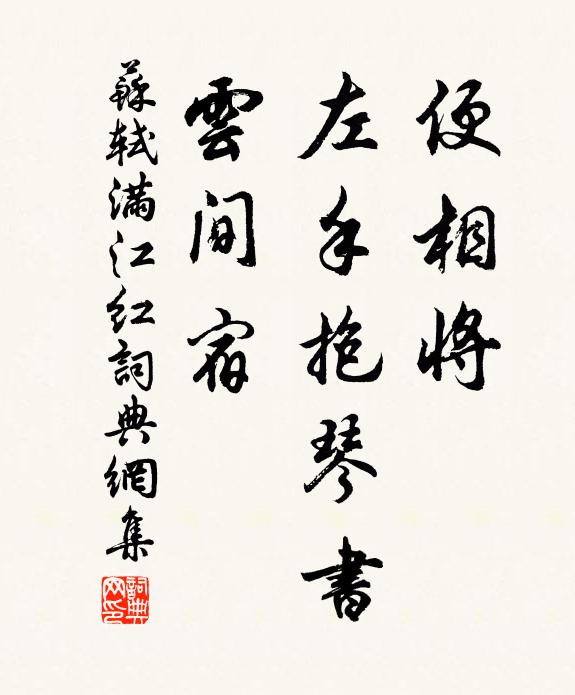 便相將
左手抱琴書
雲間宿
蘇軾滿江紅詞典網集
詞典
网印